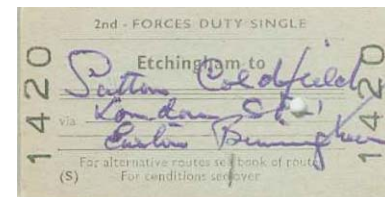 2nd - FORCES DUTY SINGLE
Etchingham to
Sutton Coldfield
via London
Euston Birmingham
For alternative routes see book of routes
(S) For conditions see over
1420
1420